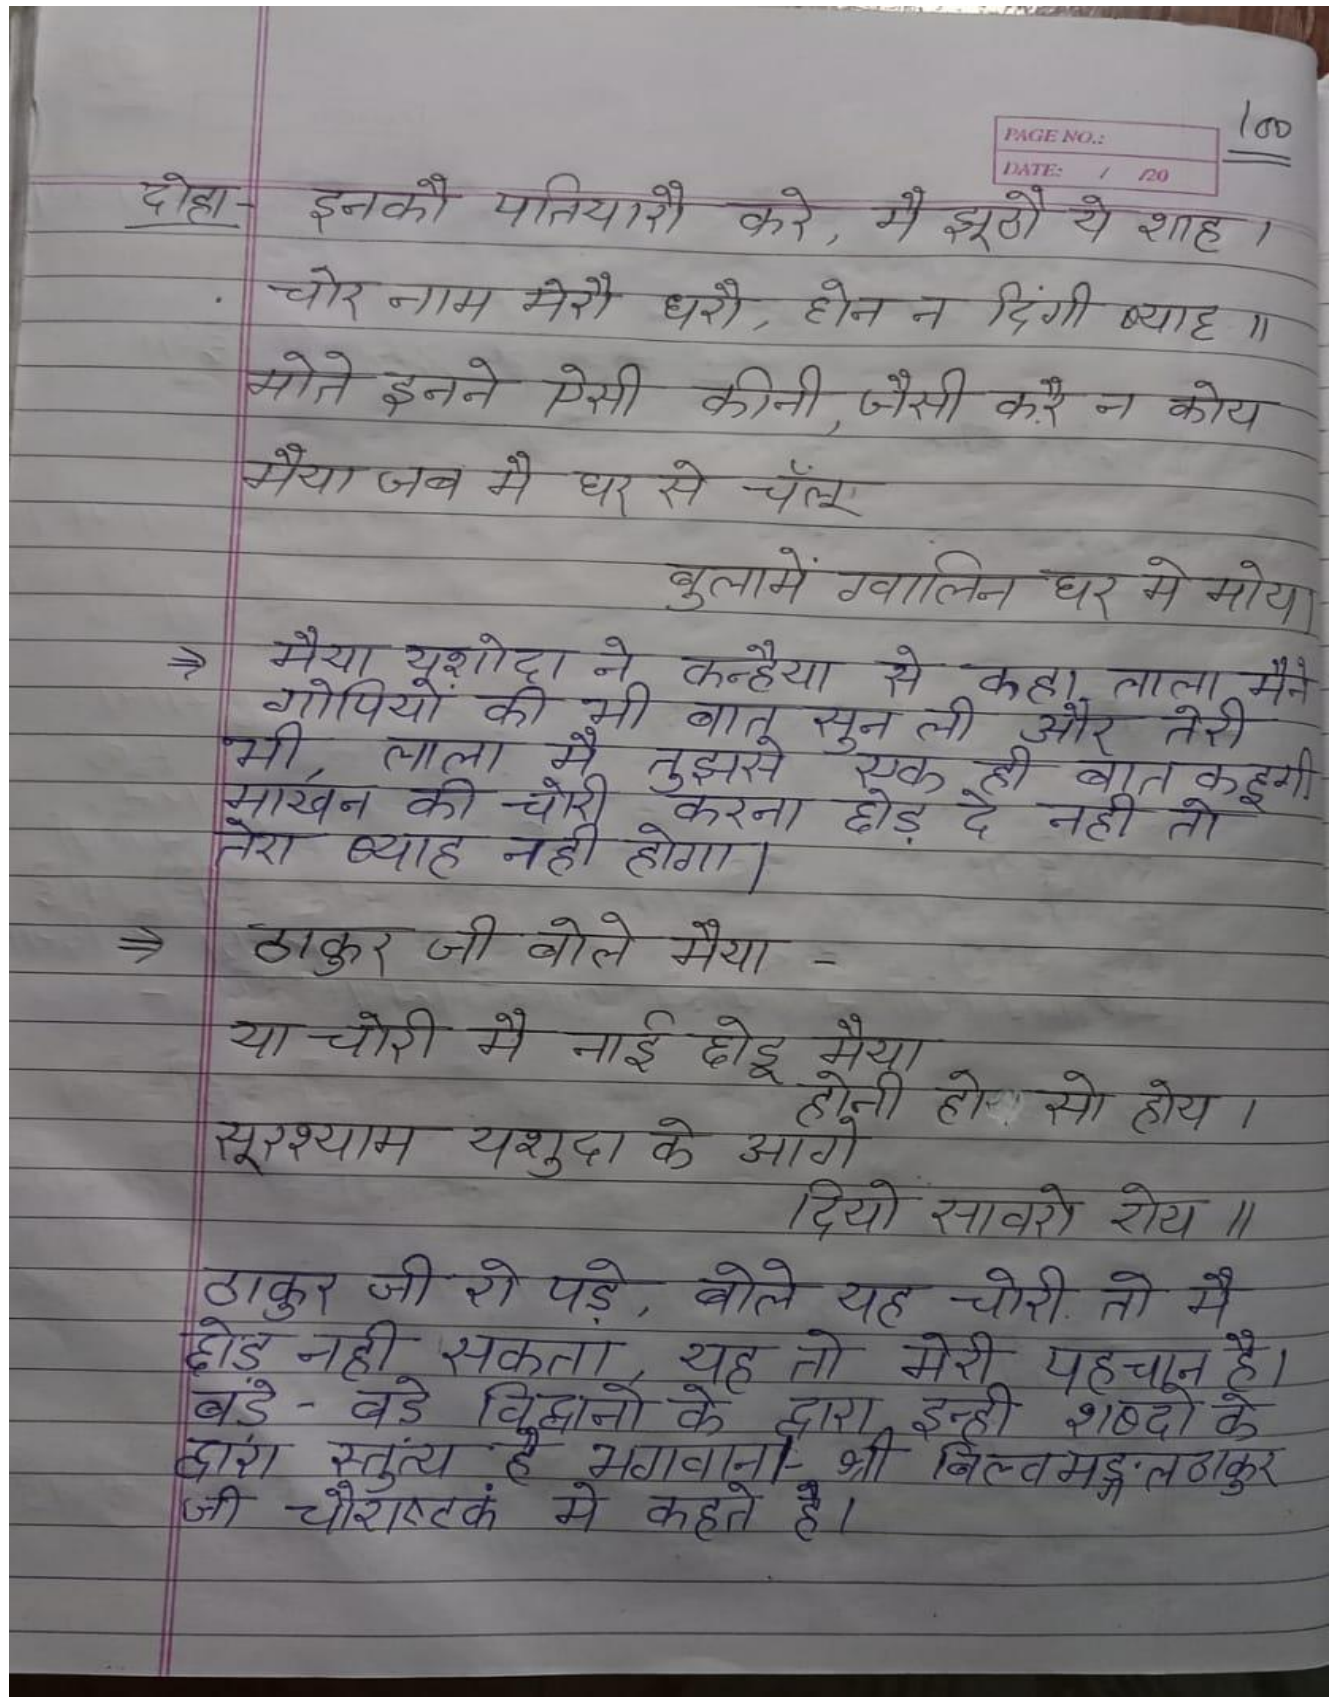 100
PAGE NO.:
DATE: / /20
दोहा - इनकौ पतियारौ करे, मै झूठौ ये शाह ।
चोर नाम मेरौ धरौ, होन न दिंगी ब्याह ॥
मोते इनने ऐसी कीनी, जैसी करै न कोय
मैया जब मै घर से चॅलू
बुलामें ग्वालिन घर मे मोय।
⇒ मैया यशोदा ने कन्हैया से कहा, लाला मैने
गोपियों की भी बात सुन ली और तेरी
भी, लाला मै तुझसे एक ही बात कहूगी
माखन की चोरी करना छोड़ दे नही तो
तेरा ब्याह नही होगा।
⇒ ठाकुर जी बोले मैया -
या चोरी मै नाई छोडू मैया
होनी होय सो होय ।
सूरश्याम यशुदा के आगे
दियो सावरो रोय ॥
ठाकुर जी रो पड़े, बोले यह चोरी तो मै
छोड़ नही सकता, यह तो मेरी पहचान है।
बडे - बडे विद्वानो के द्वारा इन्ही शब्दो के
द्वारा स्तुत्य है भगवान।- श्री बिल्वमङ्गलठाकुर
जी चौराष्टकं मे कहते है।